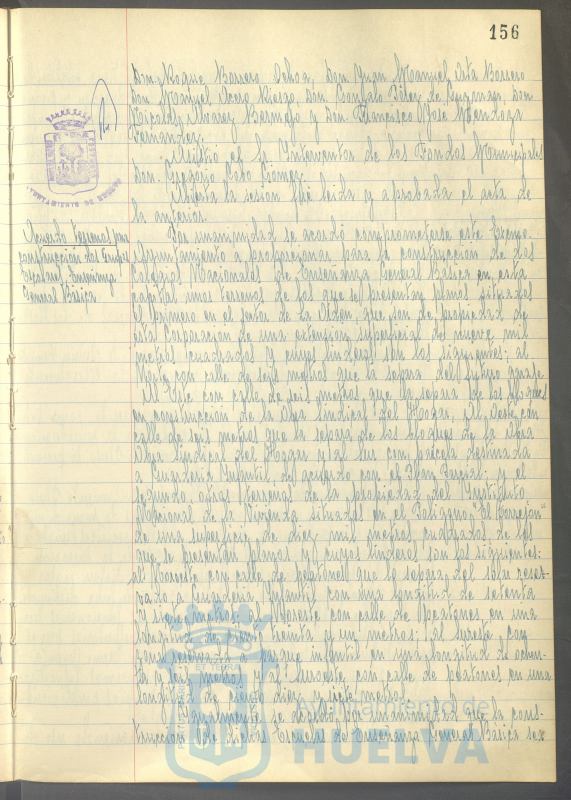 156
Don Roque Barrero Ochoa, Don Juan Manuel Arta Borrero
Don Manuel Otero Riesgo, Don Gonzalo Pérez de Guzmán, Don
Alvarez Bermejo y Don Francisco José Mendoza
Fernandez.
Asistió el Sr. Interventor de los Fondos Municipales
Don Gregorio Cobo Gómez.
Abierta la sesión fué leida y aprobada el acta de
la anterior.
Acuerdo terrenos para
construcción del Grupo
Escolar Enseñanza
General Básica.
Por unanimidad se acordó comprometerse este Excmo.
Ayuntamiento a proporcionar para la construcción de dos
Colegios Nacionales de Enseñanza General Básica en esta
capital unos terrenos de los que se presentan planos situados
el primero en el sector de la Orden que son de propiedad de
esta Corporación de una extension superficial de nueve mil
metros cuadrados y cuyos linderos son los siguientes: al
Norte con calle de seis metros que la separa del futuro
Al Este con calle de seis metros, que la separa de los bloques
en construcción de la Obra Sindical del Hogar, al Oeste con
calle de seis metros que la separa de los bloques de la Obra
Obra Sindical del Hogar y al Sur con parcela destinada
a Guarderia Infantil, de acuerdo con el Plan Parcial; y el
segundo, otros terrenos de la propiedad del Instituto
Nacional de la Vivienda situados en el Poligono "El Torrejon"
de una superficie de diez mil metros cuadrados, de los
que se presentan planos y cuyos linderos son los siguientes:
al Noroeste con calle de peatones que lo separa del solar reser-
vado a Guarderia Infantil con una longitud de setenta
y siete metros; al Noreste con calle de peatones en una
longitud de ciento treinta y un metros; al sureste con
zona reservada a parque infantil en una longitud de ochen-
ta y seis metros y al suroeste con calle de peatones en una
longitud de ciento diez y siete metros.
Igualmente se acordó por unanimidad que la cons-
trucción de dichas Escuelas de Enseñanza General Básica sea
AYUNTAMIENTO DE HUELVA
Ayuntamiento de
HUELVA